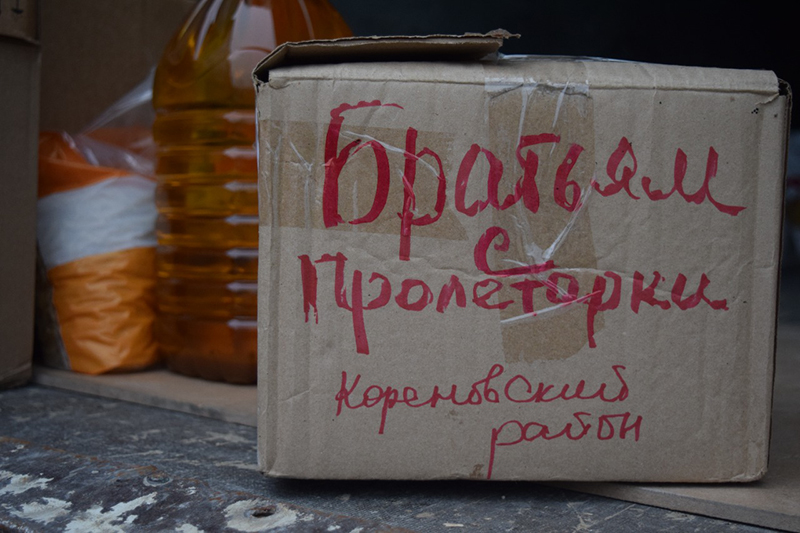 Братьям
с
Пролетарки
Кореновский
район